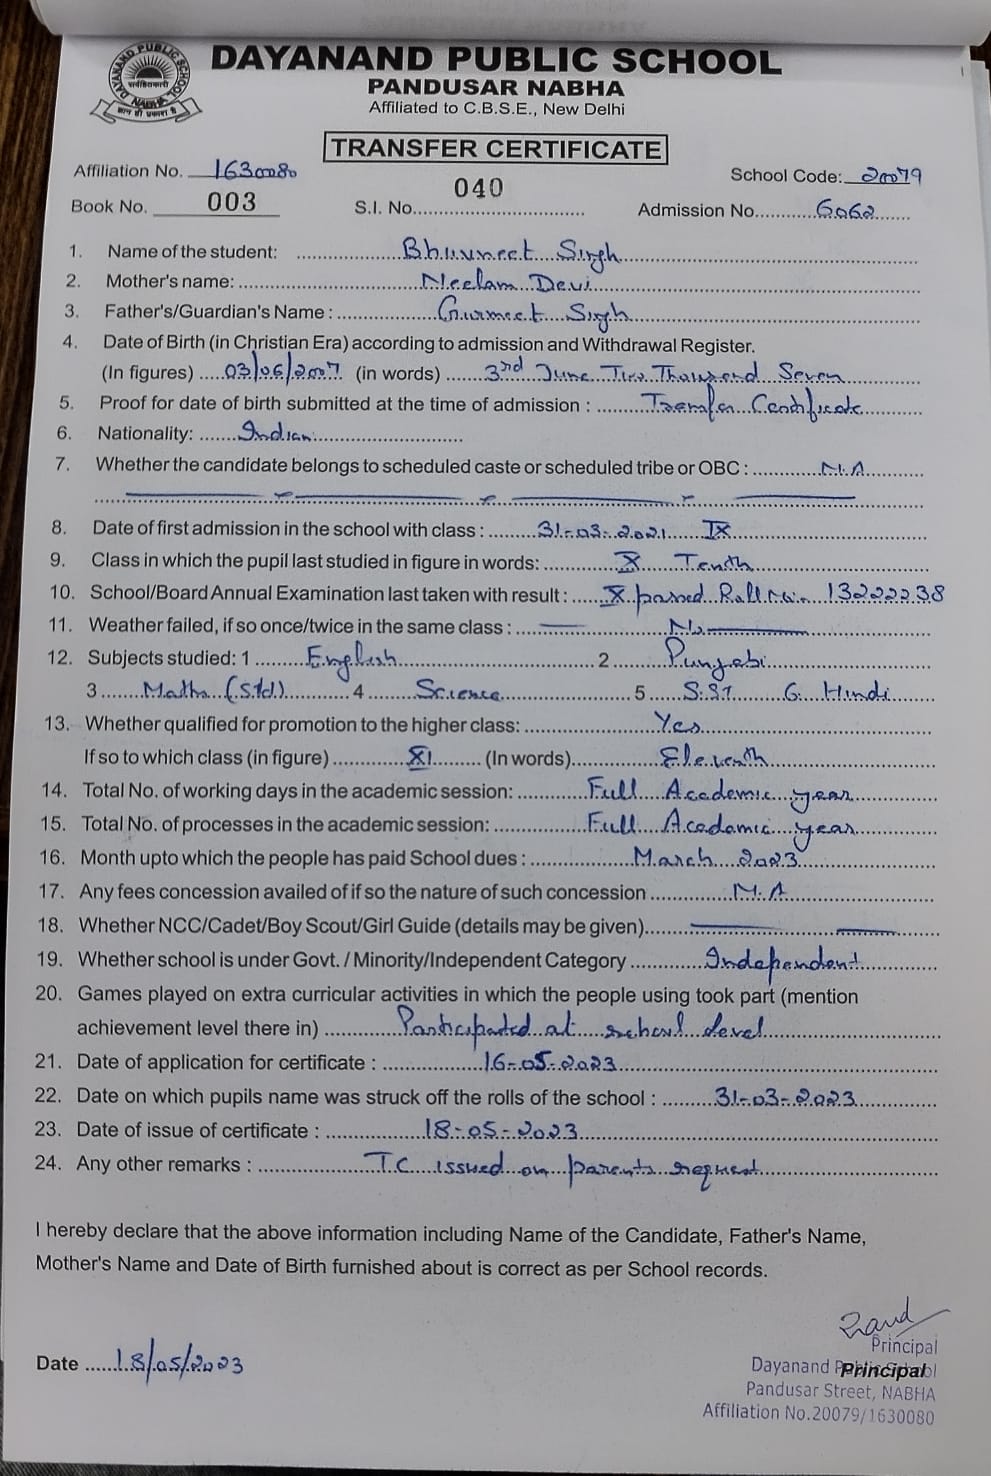 DAYANAND PUBLIC SCHOOL
DAYANAND PUBLIC SCHOOL
NABHA
PANDUSAR NABHA
Affiliated to C.B.S.E., New Delhi
TRANSFER CERTIFICATE
Affiliation No. 1630080 School Code: 20079
Book No. 003 S.I. No. 040 Admission No. 6062
1. Name of the student: Bhuvneet Singh
2. Mother's name: Neelam Devi
3. Father's/Guardian's Name : Gurmeet Singh
4. Date of Birth (in Christian Era) according to admission and Withdrawal Register.
(In figures) 03/06/2007 (in words) 3rd June Two Thousand Seven
5. Proof for date of birth submitted at the time of admission : Transfer Certificate
6. Nationality: Indian
7. Whether the candidate belongs to scheduled caste or scheduled tribe or OBC : N.A
8. Date of first admission in the school with class : 31-03-2021 IX
9. Class in which the pupil last studied in figure in words: X Tenth
10. School/Board Annual Examination last taken with result : X passed Roll No. 13222238
11. Weather failed, if so once/twice in the same class : No
12. Subjects studied: 1 English 2 Punjabi
3 Maths (Std) 4 Science 5 S.ST 6. Hindi
13. Whether qualified for promotion to the higher class: Yes
If so to which class (in figure) XI (In words) Eleventh
14. Total No. of working days in the academic session: Full Academic year
15. Total No. of processes in the academic session: Full Academic year
16. Month upto which the people has paid School dues : March 2023
17. Any fees concession availed of if so the nature of such concession N.A
18. Whether NCC/Cadet/Boy Scout/Girl Guide (details may be given)
19. Whether school is under Govt. / Minority/Independent Category Independent
20. Games played on extra curricular activities in which the people using took part (mention
achievement level there in) Participated at school level
21. Date of application for certificate : 16-05-2023
22. Date on which pupils name was struck off the rolls of the school : 31-03-2023
23. Date of issue of certificate : 18-05-2023
24. Any other remarks : TC issued on parents request
I hereby declare that the above information including Name of the Candidate, Father's Name,
Mother's Name and Date of Birth furnished about is correct as per School records.
Principal
Date 18/05/2023
Dayanand Public School
Principal
Pandusar Street, NABHA
Affiliation No.20079/1630080